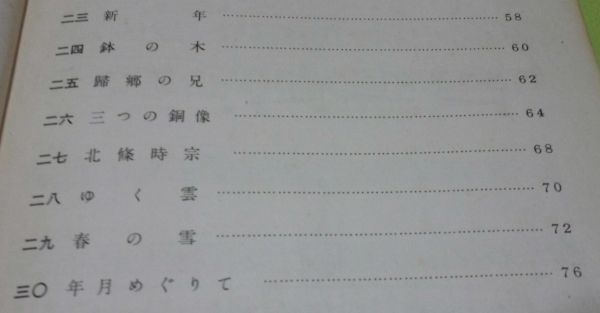 二三 新年 58
二四 鉢の木 60
二五 歸鄕の兄 62
二六 三つの銅像 64
二七 北條時宗 68
二八 ゆく雲 70
二九 春の雪 72
三〇 年月めぐりて 76